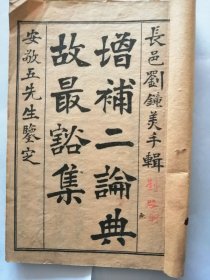 長邑劉鐘美手輯
增補二論典
故最豁集
安敬五先生鑒定